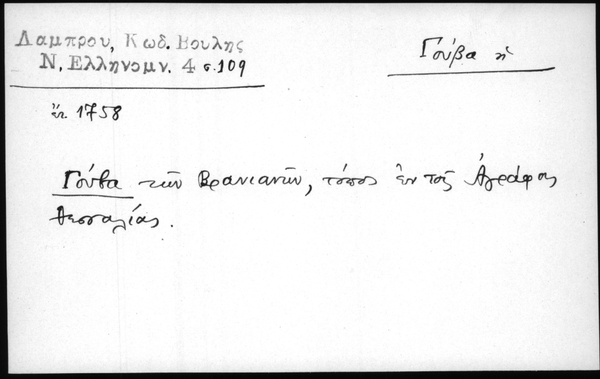 Λαμπρου, Κωδ. Βουλης
Ν. Ελληνομν. 4 σ. 109
Γούβα ἡ
ἔτ. 1758
Γούβα τῶν Βρανιανῶν, τόπος ἐν τοῖς Ἀγράφοις
Θεσσαλίας.